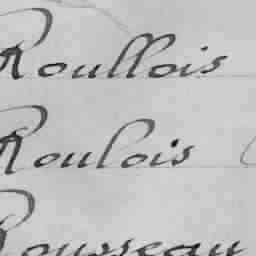 Roullois
Roulois
Rousseau